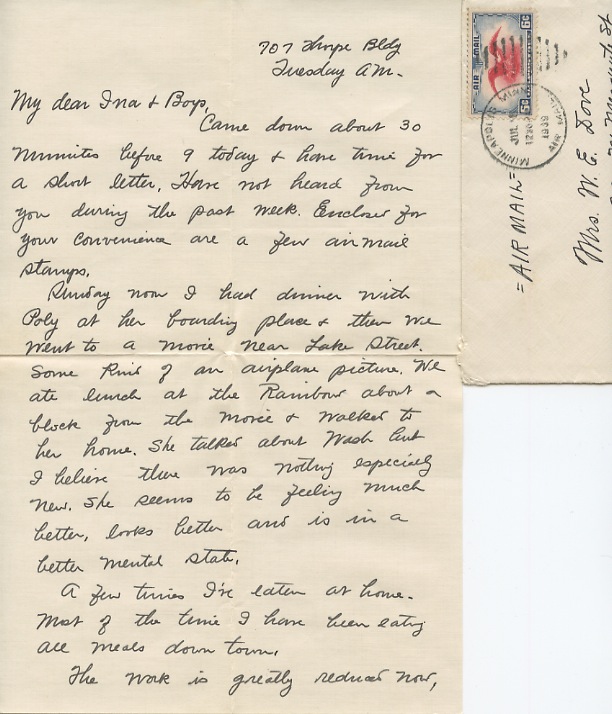 707 Thorpe Bldg
Tuesday AM.
My dear Ina & Boys,
Came down about 30
minutes before 9 today & have time for
a short letter. Have not heard from
you during the past week. Enclosed for
your convenience are a few airmail
stamps.
Sunday noon I had dinner with
Poly at her boarding place & then we
went to a movie near Lake Street.
Some kind of an airplane picture. We
ate lunch at the Rainbow about a
block from the movie & walked to
her home. She talked about Wash but
I believe there was nothing especially
new. She seems to be feeling much
better, looks better and is in a
better mental state.
A few times I've eaten at home.
Most of the time I have been eating
all meals down town.
The work is greatly reduced now,
AIR MAIL
6¢ 6¢
MINNEAPOLIS MINN.
JUL
1939
AIR MAIL
=AIR MAIL=
Mrs. W. E. Dove